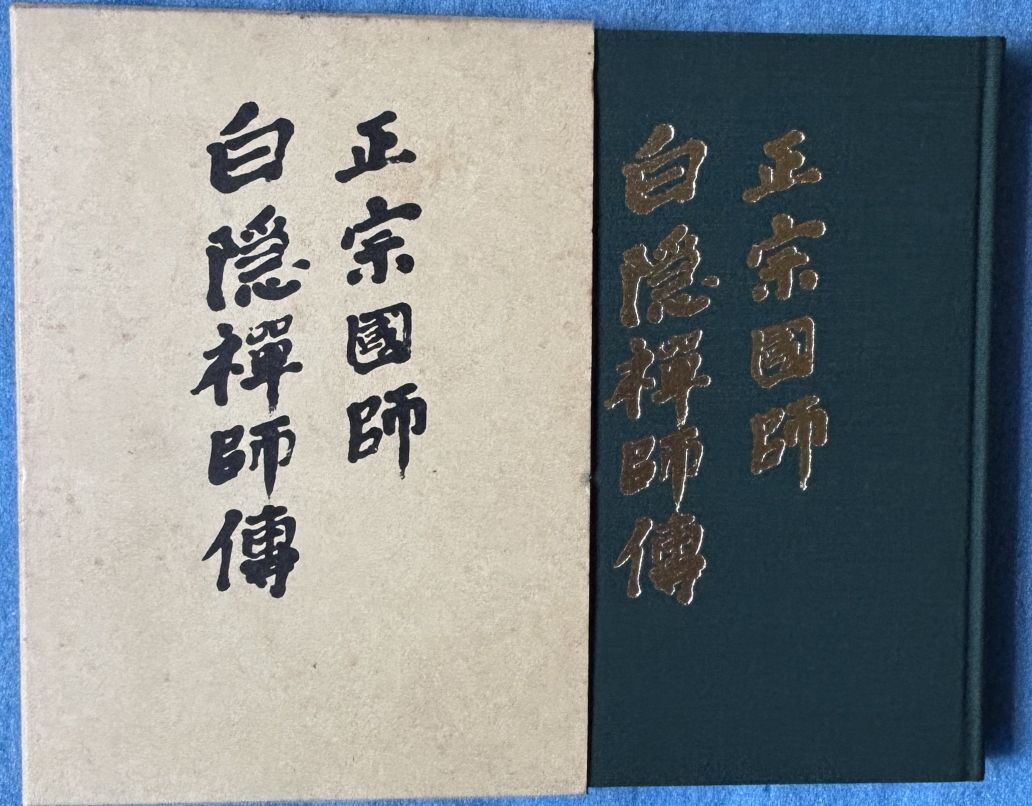 正宗國師
白隠禪師傳
正宗國師
白隠禪師傳